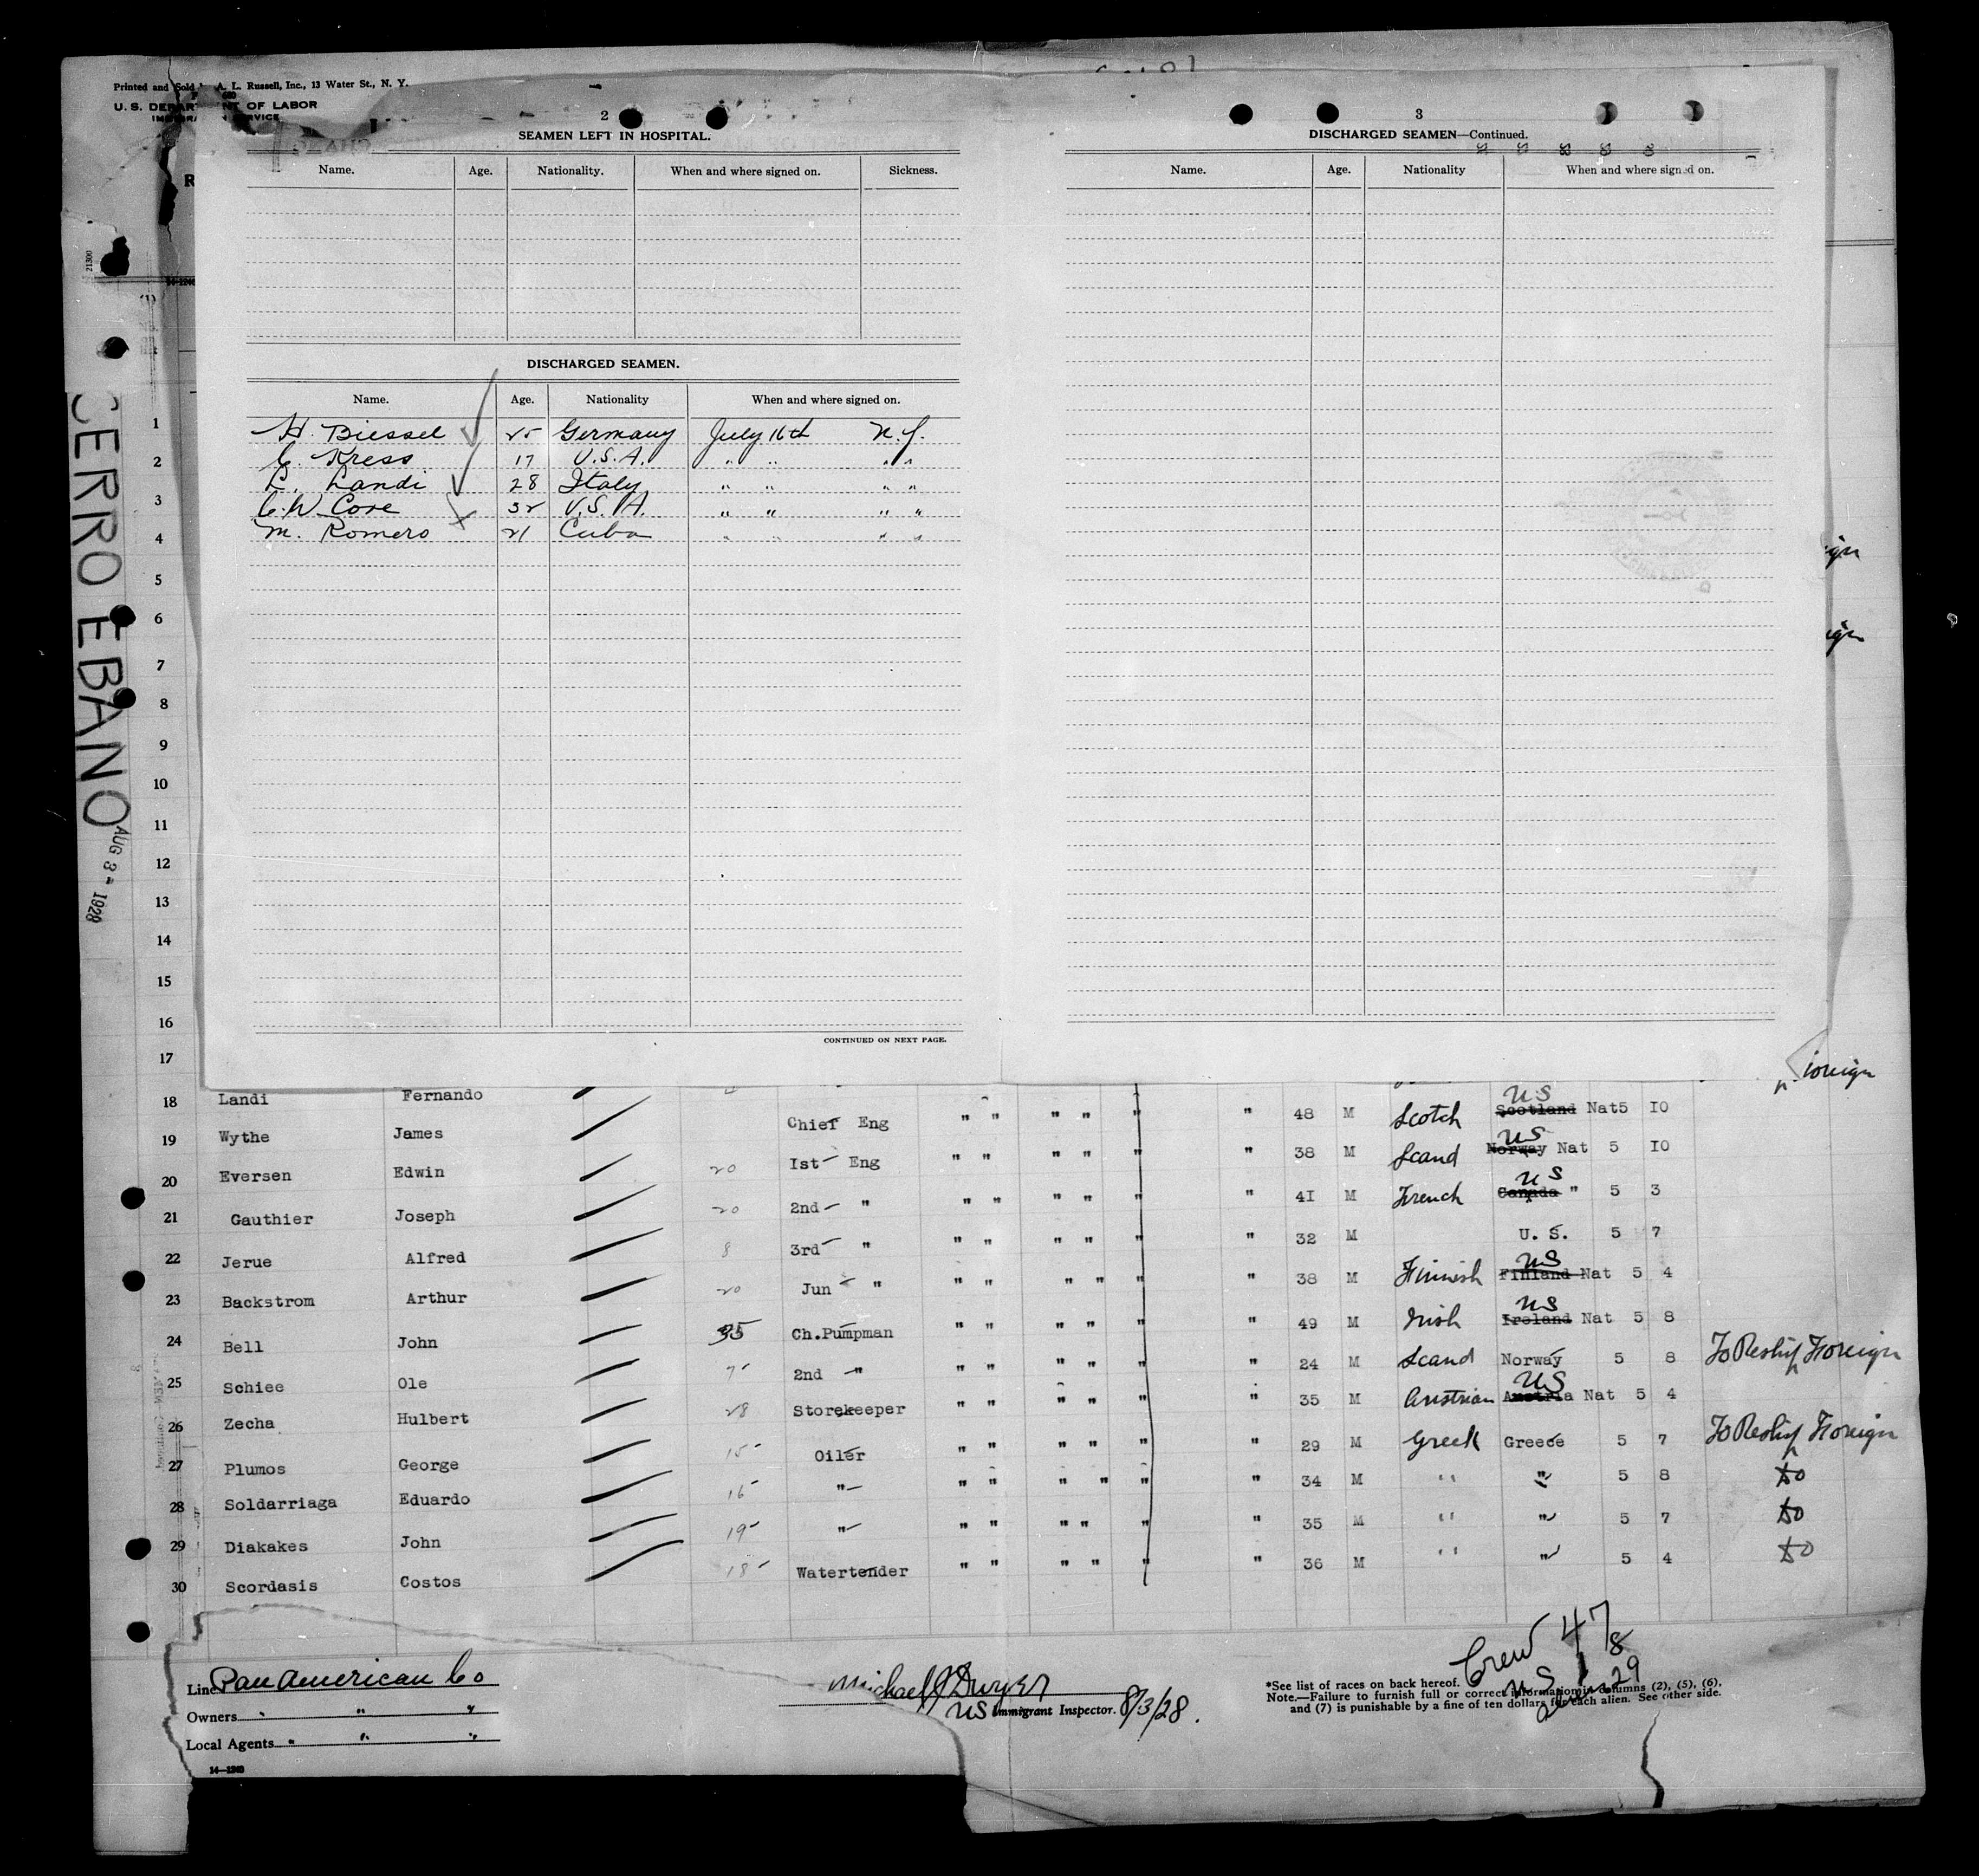 Printed and Sold A. L. Russell, Inc., 13 Water St., N. Y.
U. S. DEPARTMENT OF LABOR
2
SEAMEN LEFT IN HOSPITAL.
Name. Age. Nationality. When and where signed on. Sickness.
DISCHARGED SEAMEN.
Name. Age. Nationality When and where signed on.
H. Biessel 25 Germany July 16th N.Y.
C. Kress 17 U.S.A. " " " "
L. Landi 28 Italy " " " "
C.W. Core 32 U.S.A. " " " "
M. Romero 21 Cuba " " " "
CONTINUED ON NEXT PAGE.
3
DISCHARGED SEAMEN—Continued.
Name. Age. Nationality When and where signed on.
21300
14-1240
(1)
CERRO EBANO
AUG 3 - 1928
1
2
3
4
5
6
7
8
9
10
11
12
13
14
15
16
17
18 Landi Fernando
19 Wythe James Chief Eng " " " " " " 48 M Scotch US Scotland Nat 5 10
20 Eversen Edwin 20 1st Eng " " " " " " 38 M Scand US Norway Nat 5 10
21 Gauthier Joseph 20 2nd " " " " " " " 41 M French US Canada " 5 3
22 Jerue Alfred 8 3rd " " " " " " " 32 M U. S. 5 7
23 Backstrom Arthur 20 Jun " " " " " " " 38 M Finnish US Finland Nat 5 4
24 Bell John 35 Ch.Pumpman " " " " " " 49 M Irish US Ireland Nat 5 8
25 Schiee Ole 7 2nd " " " " " " " 24 M Scand Norway 5 8 To Reship Foreign
26 Zecha Hulbert 28 Storekeeper " " " " " " 35 M Austrian US Austria Nat 5 4
27 Plumos George 15 Oiler " " " " " " 29 M Greek Greece 5 7 To Reship Foreign
28 Soldarriaga Eduardo 16 " " " " " " " 34 M " " 5 8 do
29 Diakakes John 19 " " " " " " " 35 M " " 5 7 do
30 Scordasis Costos 18 Watertender " " " " " " 36 M " " 5 4 do
Line Pan American Co
Owners " " "
Local Agents " " "
14—1240
Michael J Dwyer
US Immigrant Inspector. 8/3/28.
Crew 47
US 18
Aliens 29
*See list of races on back hereof.
Note.—Failure to furnish full or correct information in columns (2), (5), (6),
and (7) is punishable by a fine of ten dollars for each alien. See other side.